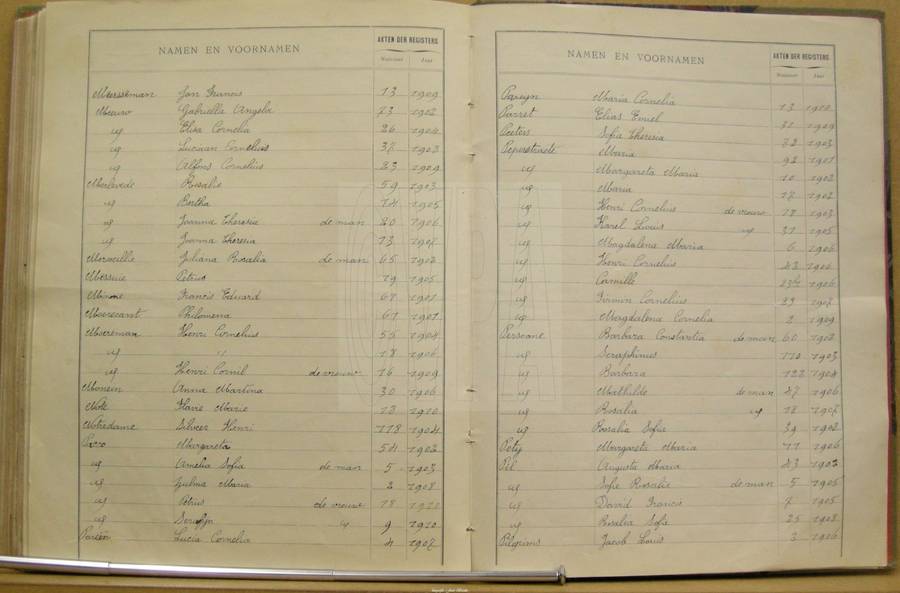 NAMEN EN VOORNAMEN
AKTEN DER REGISTERS
Nummer Jaar
Meersseman Jan Francis 13 1909
Meuro Gabriella Angela 23 1902
ug Elisa Cornelia 26 1904
ug Luciaan Cornelius 37 1903
ug Alfons Cornelius 23 1909
Merlevede Rosalie 59 1903
ug Bertha 74 1905
ug Joanna Theresia de man 20 1906
ug Joanna Theresia 73 1907
Merveillie Juliana Rosalia de man 65 1902
Messeuie Petrus 79 1905
Minne Francis Eduard 67 1901
Moerecant Philomena 61 1901
Moerman Henri Cornelius 55 1904
ug " 18 1906
ug Henri Cornil de vrouw 16 1909
Monein Anna Martina 30 1906
Marie 13 1910
Notredame Silveer Henri 118 1904
Margareta 54 1902
ug Amelia Sofia de man 5 1903
ug Zulma Maria 2 1908
ug Petrus de vrouw 18 1910
ug Serafijn ug 9 1910
Lucia Cornelia 4 1907
NAMEN EN VOORNAMEN
AKTEN DER REGISTERS
Nummer Jaar
Pareyn Maria Cornelia 13 1902
Parret Elias Emiel 31 1909
Peeters Sofia Theresia 72 1903
Peperstraete Maria 92 1901
ug Margareta Maria 10 1902
ug Maria 17 1902
ug Henri Cornelius de vrouw 18 1903
ug Karel Louis ug 31 1905
ug Magdalena Maria 6 1906
ug Henri Cornelius 23 1906
ug Camille 1906
ug Firmin Cornelius 29 1907
ug Magdalena Cornelia 2 1909
Persoone Barbara Constantia de man 60 1902
ug Seraphinus 110 1903
ug Barbara 122 1904
ug Mathilde de man 27 1906
ug Rosalia ug 18 1907
ug Rosalia Sofia 39 1902
Pety Margareta Maria 77 1906
Pil Augusta Maria 23 1902
ug Sofie Rosalie de man 5 1905
ug David Francis 7 1905
ug Rosalia Sofia 25 1908
Pilgrians Jacob Louis 3 1906